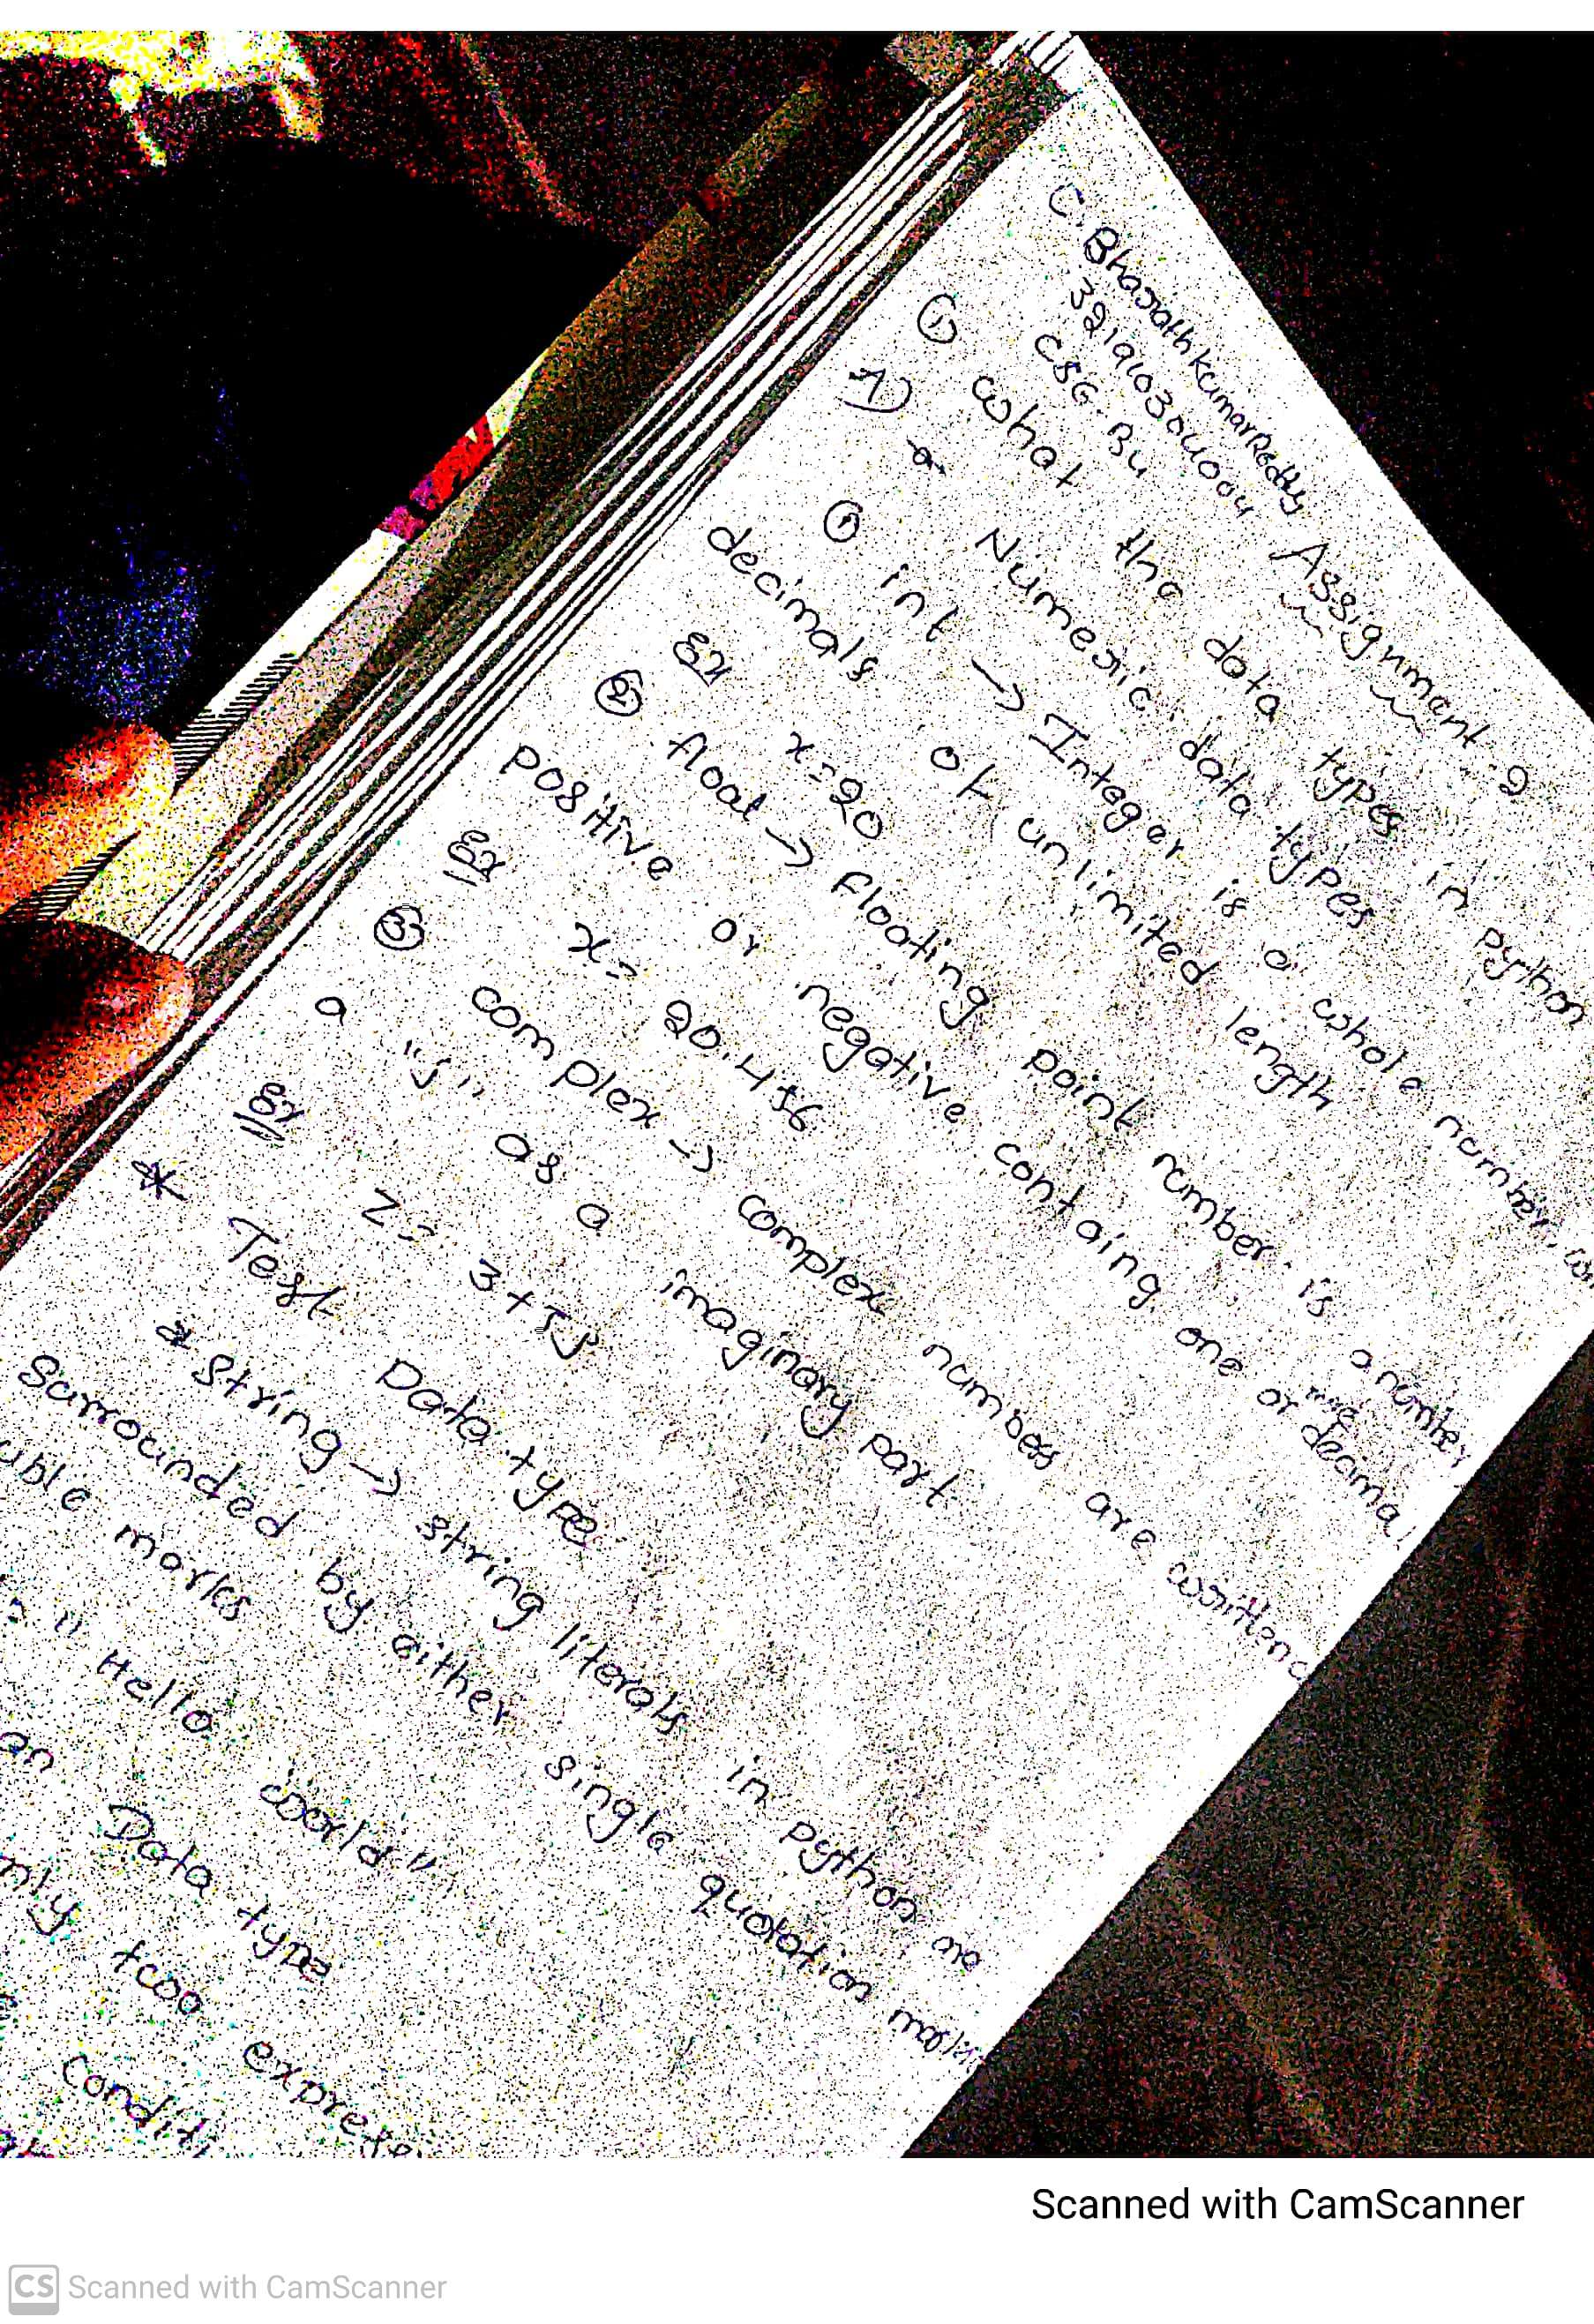 C. Bharath Kumar Reddy
321910304004
CSE-B4
Assignment-2
① What the data types in python
A) Numeric data types
① int → Integer is a whole number,
decimals of unlimited length
Ex x=20
② float → Floating point number is a number,
positive or negative containing one or decimal
Ex x= 20.456
③ complex → complex numbes are written
a "j" as a imaginary part
Ex Z= 3+5j
* Test Data type
* String → string literals in python are
Surrounded by either single quotation marks
marks
" Hello world"
Data type
two
Scanned with CamScanner
CS Scanned with CamScanner